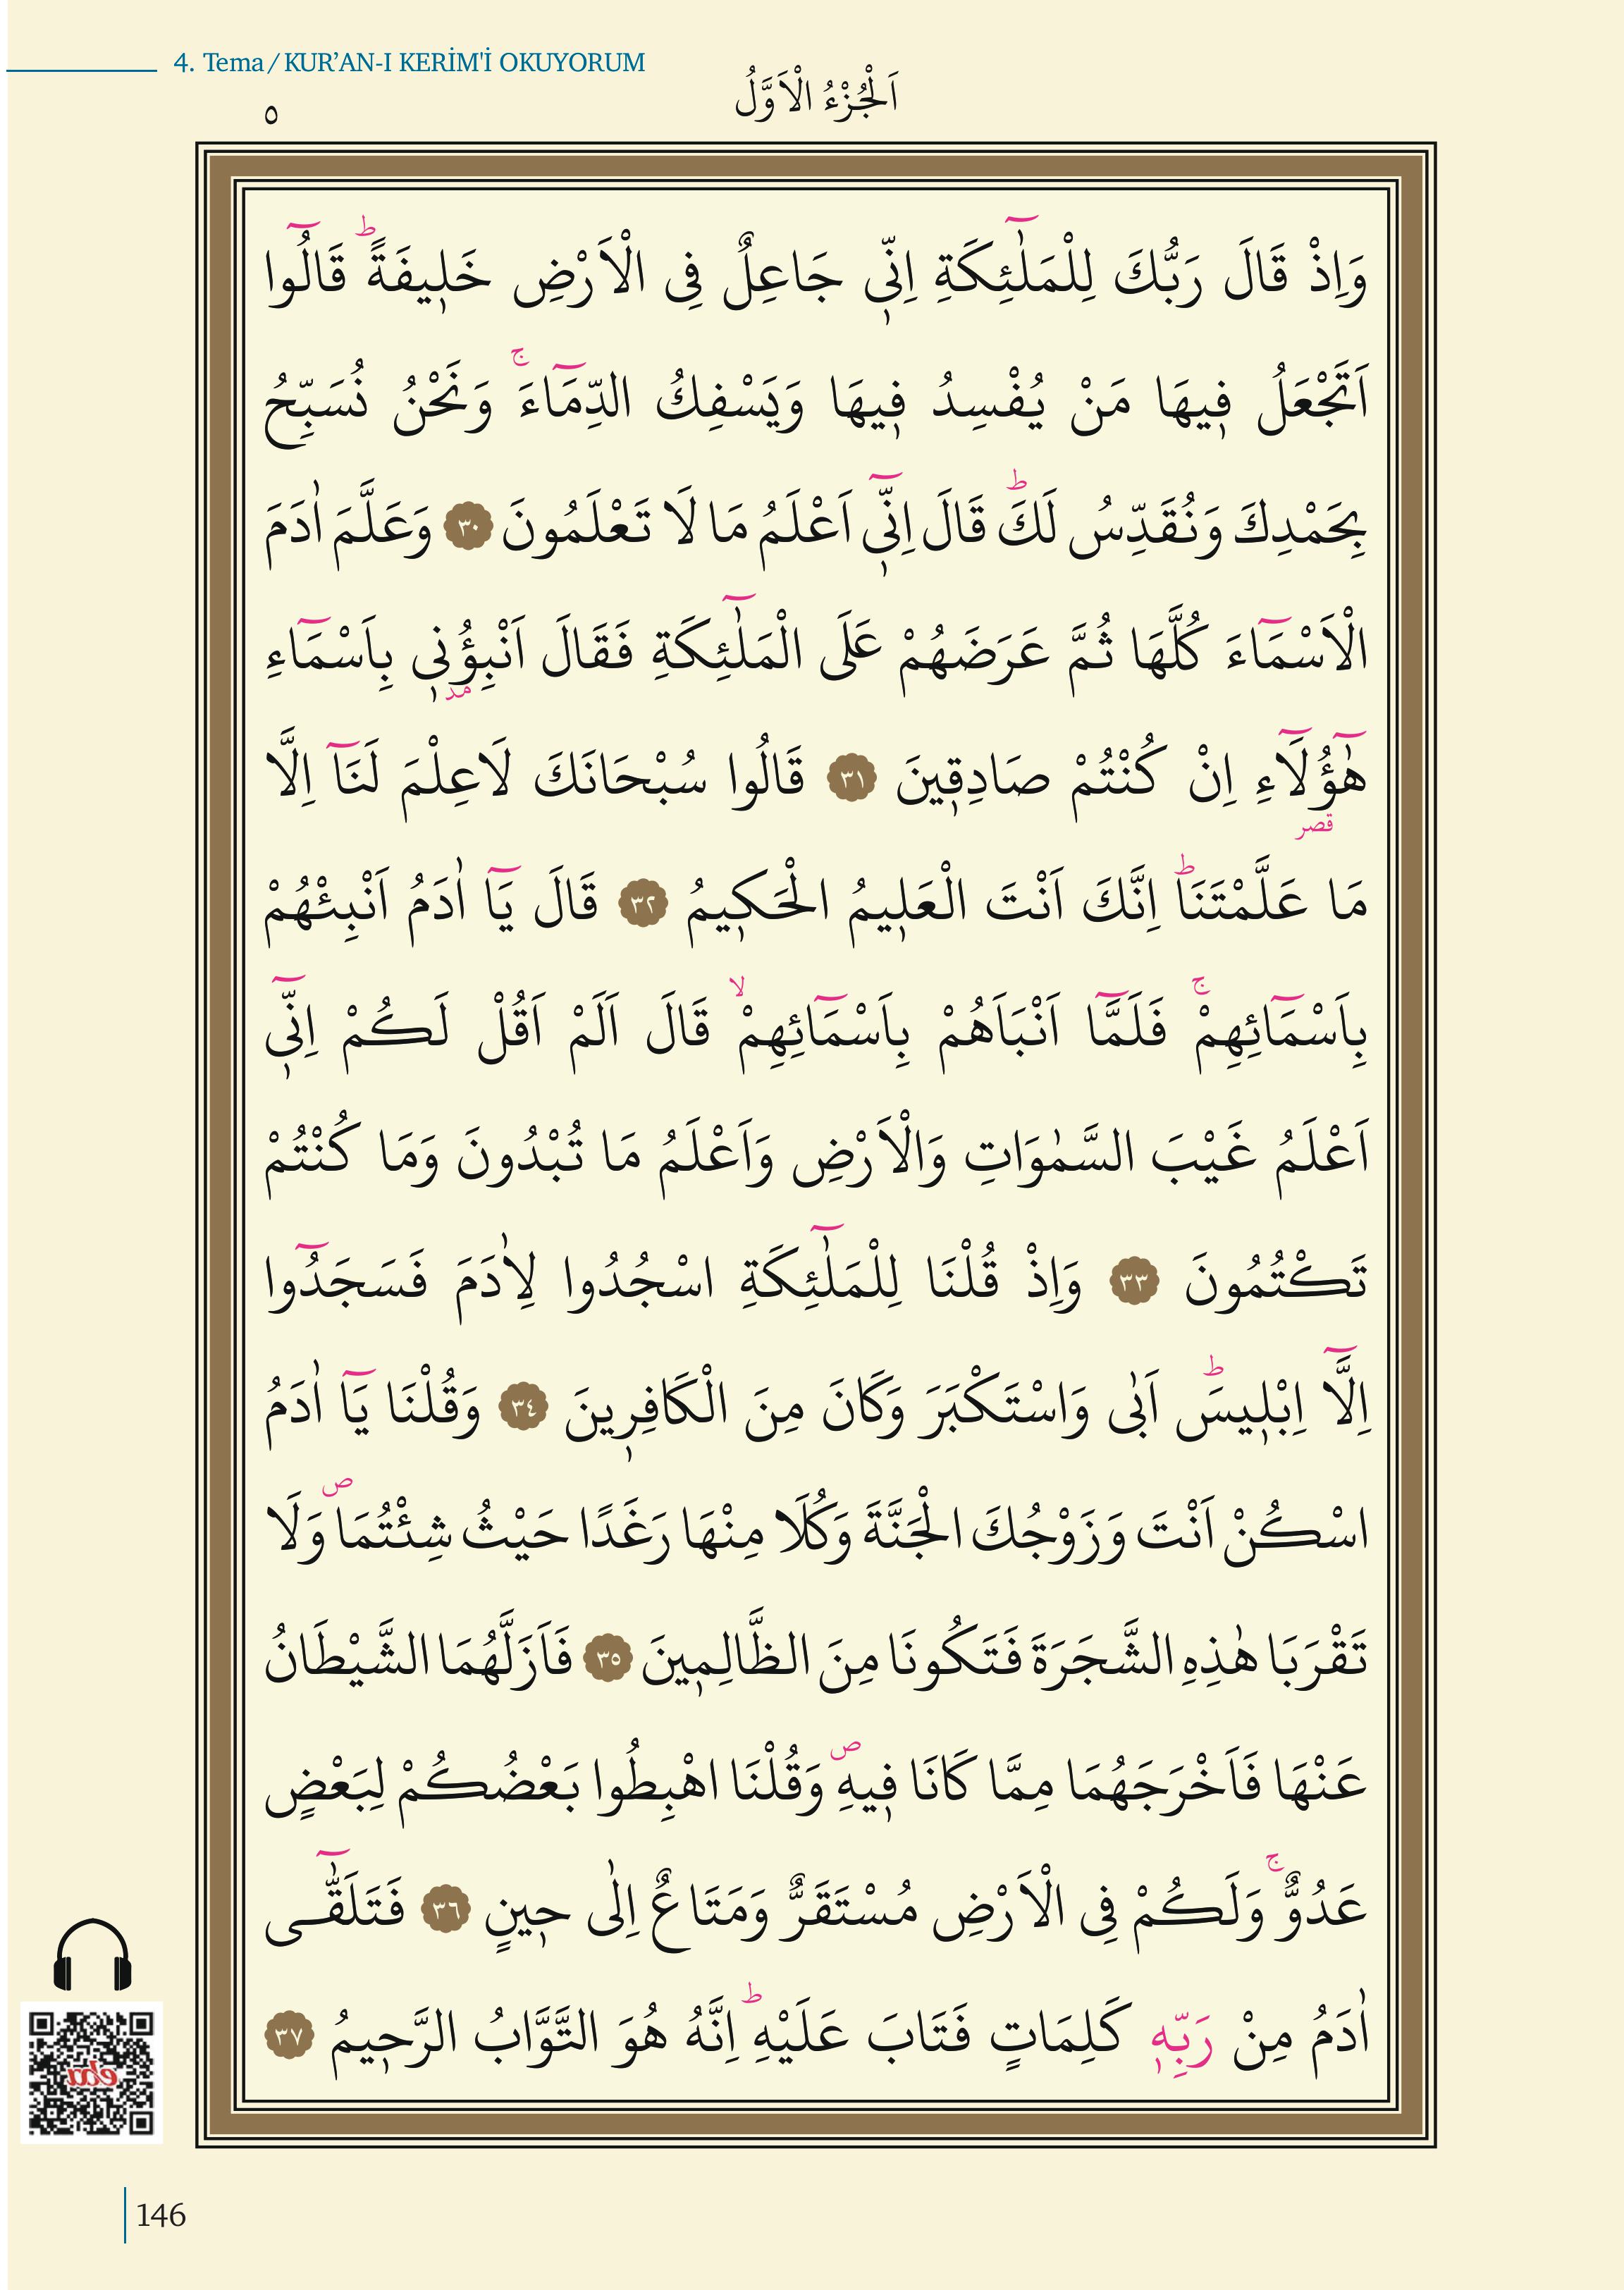 4. Tema/KUR’AN-I KERİM'İ OKUYORUM
اَلْجُزْءُ الْاَوَّلُ
٥
وَاِذْ قَالَ رَبُّكَ لِلْمَلٰٓئِكَةِ اِنّ۪ي جَاعِلٌ فِي الْاَرْضِ خَل۪يفَةًۜ قَالُٓوا
اَتَجْعَلُ ف۪يهَا مَنْ يُفْسِدُ ف۪يهَا وَيَسْفِكُ الدِّمَٓاءَۚ وَنَحْنُ نُسَبِّحُ
بِحَمْدِكَ وَنُقَدِّسُ لَكَۜ قَالَ اِنّ۪ٓي اَعْلَمُ مَا لَا تَعْلَمُونَ ٣٠ وَعَلَّمَ اٰدَمَ
الْاَسْمَٓاءَ كُلَّهَا ثُمَّ عَرَضَهُمْ عَلَى الْمَلٰٓئِكَةِ فَقَالَ اَنْبِؤُ۫ن۪ي بِاَسْمَٓاءِ
مد
هٰٓؤُ۬لَٓاءِ اِنْ كُنْتُمْ صَادِق۪ينَ ٣١ قَالُوا سُبْحَانَكَ لَاعِلْمَ لَنَٓا اِلَّا
قصر
مَا عَلَّمْتَنَاۜ اِنَّكَ اَنْتَ الْعَل۪يمُ الْحَك۪يمُ ٣٢ قَالَ يَٓا اٰدَمُ اَنْبِئْهُمْ
بِاَسْمَٓائِهِمْۚ فَلَمَّٓا اَنْبَاَهُمْ بِاَسْمَٓائِهِمْۙ قَالَ اَلَمْ اَقُلْ لَكُمْ اِنّ۪ٓي
اَعْلَمُ غَيْبَ السَّمٰوَاتِ وَالْاَرْضِ وَاَعْلَمُ مَا تُبْدُونَ وَمَا كُنْتُمْ
تَكْتُمُونَ ٣٣ وَاِذْ قُلْنَا لِلْمَلٰٓئِكَةِ اسْجُدُوا لِاٰدَمَ فَسَجَدُٓوا
اِلَّٓا اِبْل۪يسَۜ اَبٰى وَاسْتَكْبَرَ وَكَانَ مِنَ الْكَافِر۪ينَ ٣٤ وَقُلْنَا يَٓا اٰدَمُ
اسْكُنْ اَنْتَ وَزَوْجُكَ الْجَنَّةَ وَكُلَا مِنْهَا رَغَدًا حَيْثُ شِئْتُمَاۖ وَلَا
تَقْرَبَا هٰذِهِ الشَّجَرَةَ فَتَكُونَا مِنَ الظَّالِم۪ينَ ٣٥ فَاَزَلَّهُمَا الشَّيْطَانُ
عَنْهَا فَاَخْرَجَهُمَا مِمَّا كَانَا ف۪يهِۖ وَقُلْنَا اهْبِطُوا بَعْضُكُمْ لِبَعْضٍ
عَدُوٌّۚ وَلَكُمْ فِي الْاَرْضِ مُسْتَقَرٌّ وَمَتَاعٌ اِلٰى ح۪ينٍ ٣٦ فَتَلَقّٰٓى
اٰدَمُ مِنْ رَبِّه۪ كَلِمَاتٍ فَتَابَ عَلَيْهِۜ اِنَّهُ هُوَ التَّوَّابُ الرَّح۪يمُ ٣٧
eba
146